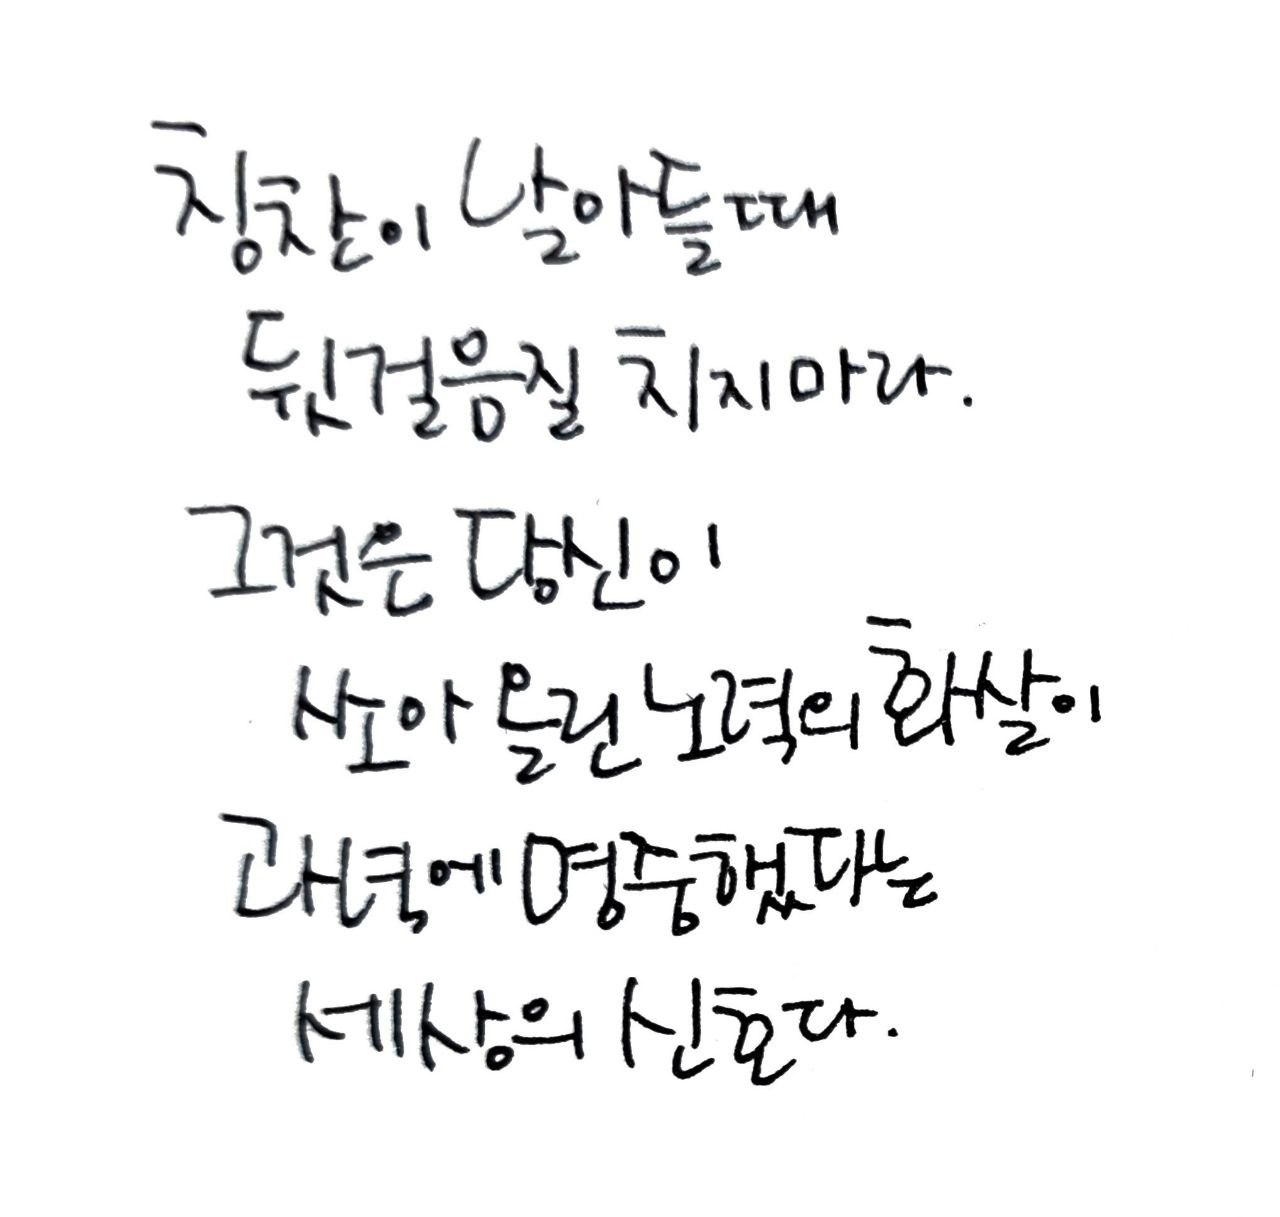 칭찬이 날아들때
뒷걸음질 치지마라.
그것은 당신이
쏘아 올린 노력의 화살이
과녁에 명중했다는
세상의 신호다.